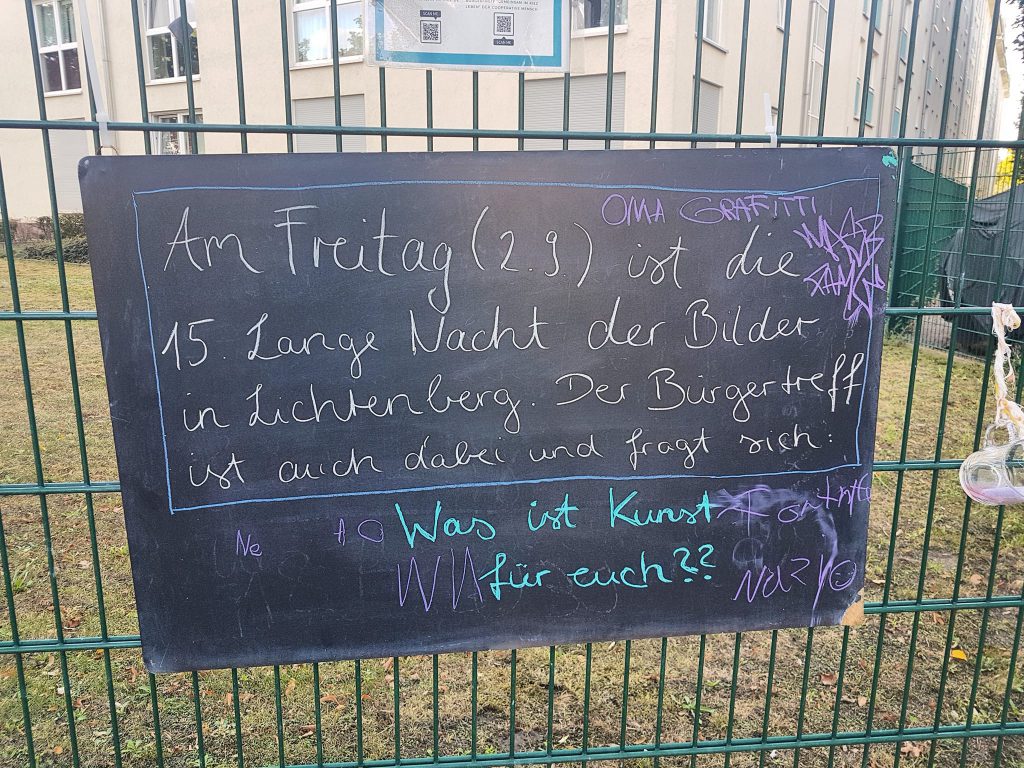 SCAN ME
SCAN ME
OMA GRAFITTI
Am Freitag (2.9.) ist die
15. Lange Nacht der Bilder
in Lichtenberg. Der Bürgertreff
ist auch dabei und fragt sich:
Was ist Kunst
für euch??
Ne